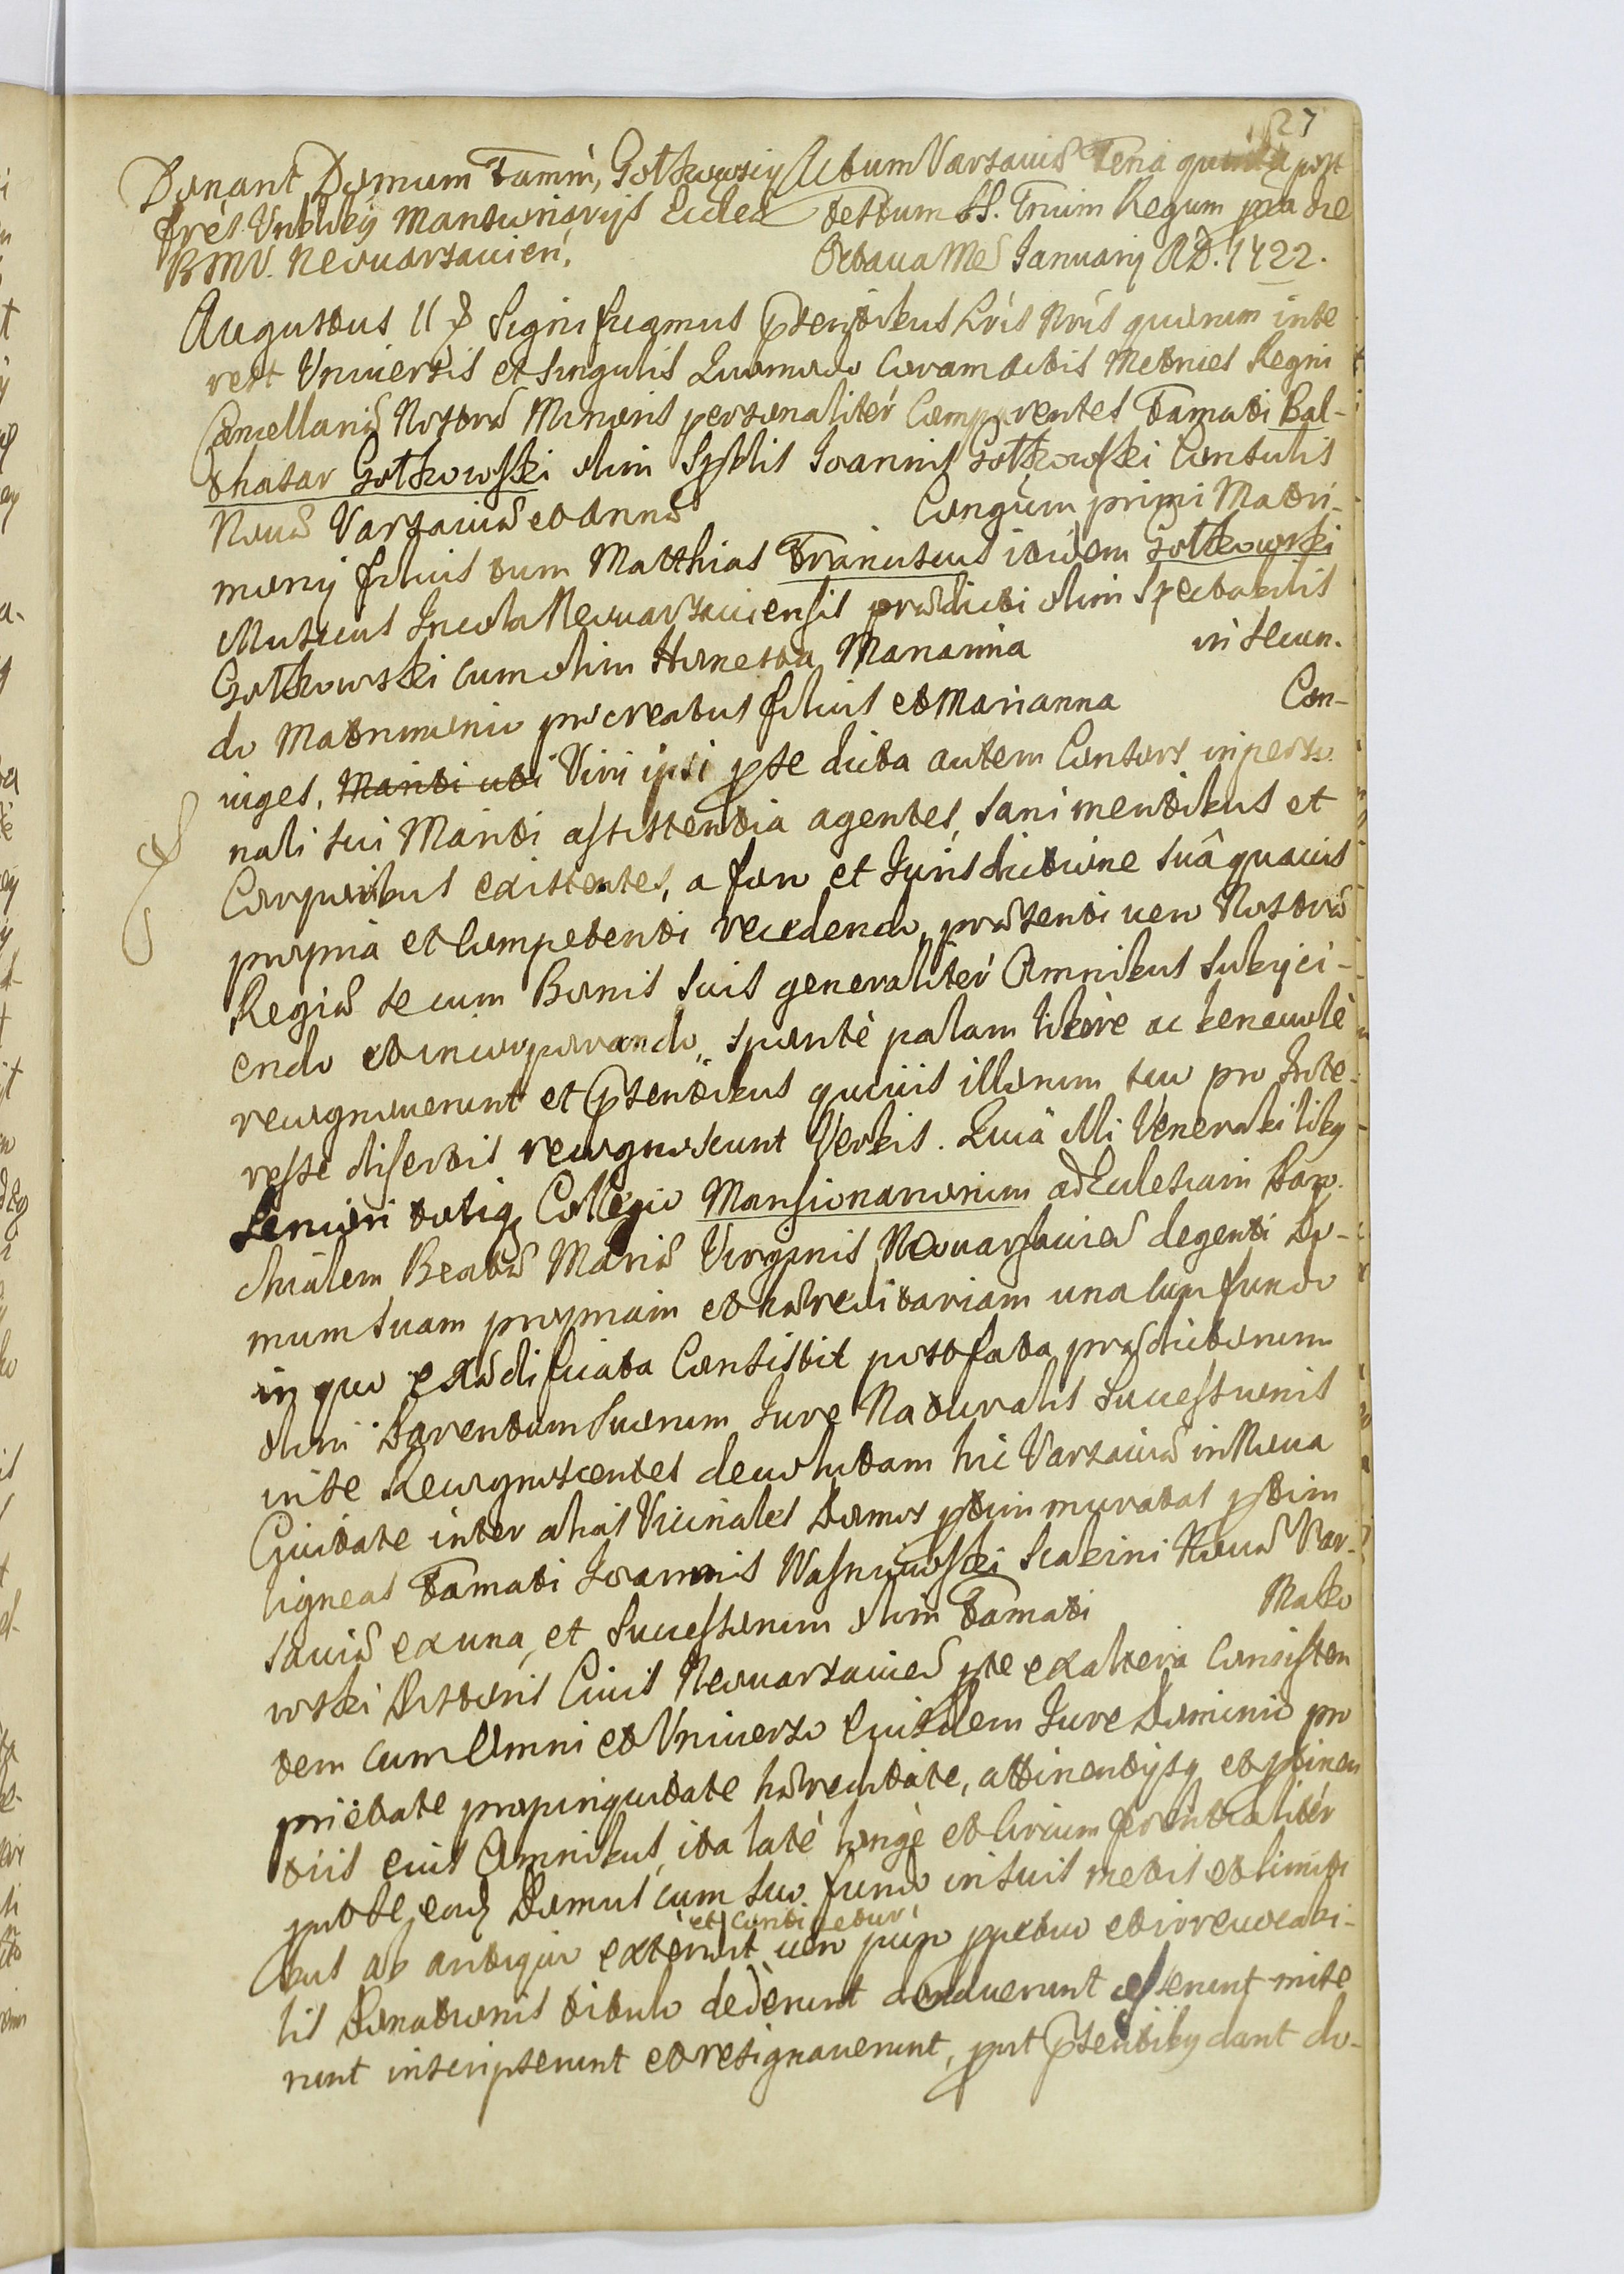 127
Donant Domum Famti, Gotkowscy
frēs Vnbldcy Mansionarijs Eccleæ
BMV. Neovarsavien,
Actum Varsaviæ Feria quinta post
Festum SS. Trium Regum præa die
Octava Mēs Januarij AD. 1722.
Augustus II &. Significamus Pñtentibus Lrīs Nrīs quorum inte
rest Vniversis et singulis Quomodo Coram Actis Metrices Regni
Cancellariæ Nostræ Minoris personalitér Comparentes Famati Bal-
thasar Gotkowski olim Spblis Joannis Gotkowski Consulis
Novæ Varsaviæ et Annæ Congum primi Matri-
monij filius tum Matthias Franciscus itidem Gotkowski
Musicus Incola Neovarsaviensis prædicti olim Spectabilis
Gotkowski cum olim Honesta Marianna in secun-
do Matrimonio procreatus filius et Marianna Con-
iuges, Mariti uti Viri ipsi p se dicta autem Consors in perso-
nali sui Mariti assistentia agentes, sani mentibus et
Corporibus existentes, a foro et Jurisdictione suâ quavis
propria et competenti recedendo, præsenti vero Nostræ
Regiæ se cum Bonis suis generalitér Omnibus subijci-
endo et incorporando, sponté palam liberè ac benevolè
recognoverunt et Pñtentibus quivis illorum suo pro Inte-
resse disertis recognoscunt Verbis. Quia illi Venerabiliby
Seniori totiq Collegio Mansionariorum ad Ecclesiam Paro-
chialem Beatæ Mariæ Virginis Neovarsavieæ degenti Do-
mum suam propriam et hæreditariam una cum fundo
in quo exædificata Consistit post fata prædictorum
olim Parentum Suorum Jure Naturalis Successionis
in se Recognoscentes devolutam hic Varsaviæ in Nova
Civitate inter alias Vicinales Domos ptim muratas ptim
ligneas Famati Joannis Wasniowski Scabini Novæ Var-
saviæ ex una, et Successorum olim Famati Malko
wski Pistoris Civis Neovarsavieæ pte ex altera Consisten
tem cum Omni et Vniverso Eiusdem Jure Dominio pro
prietate propinquitate hæreditate, attinentijsq et ptinen
tiis eius Omnibus, ita laté longè et circumferentialitér
prout se, eadq Domus cum suo fundo in suis metis et limiti
bus ab antiquo extendit et Continetur vero puro ppetuo et irrevocabi-
lis Donationis titulo dederunt donaverunt cesserunt mise
runt inscripserunt et resignaverunt, put Pñtentiby dant do-